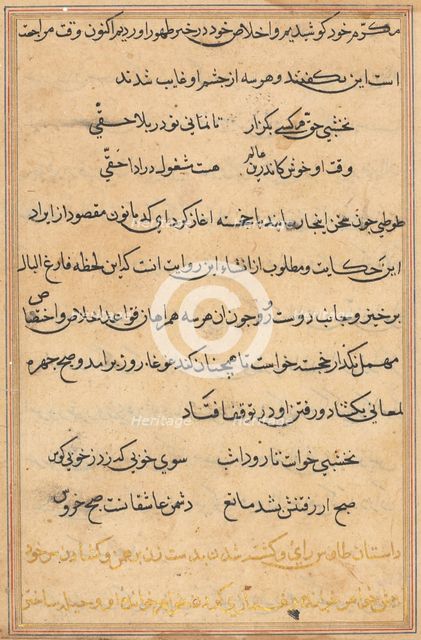 مکرّم خود کوشیدیم و اخلاص خود در خیر ظهور اوردیم اکنون وقت مراجعت
است این بکفتند و هر سه از چشم او غایب شدند
نخشبی حق هر کسی بکزار تا نمانی تو در بلا حقّی
وقت او خوش که اندرین عالم هست مشغول در ادا حقّی
طوطی چون سخن اینجا رسانید با خجسته اغاز کرد ای کدبانو مقصود از ایراد
این حکایت و مطلوب از انشاء این روایت انست که این لحظه فارغ البال
برخیز و جانب دوست رو و چون ان هر سه همراه از قواعد اخلاص و اختصاص
مهمل نکذار خجسته خواست تا همچنان کند غوغا روز برامد و صبح چهره
لمعانی بکشاد و رفتن او در توقف افتاد
نخشبی خواست تا رود امشب سوی خوبی که زد ز خوبی کوس
صبح از رفتنش بشد مانع دشمن عاشقانست صبح خروس
داستان طاوس رای و کشته شدن بدست زن برهمن و
Heritage
Heritage
Heritage